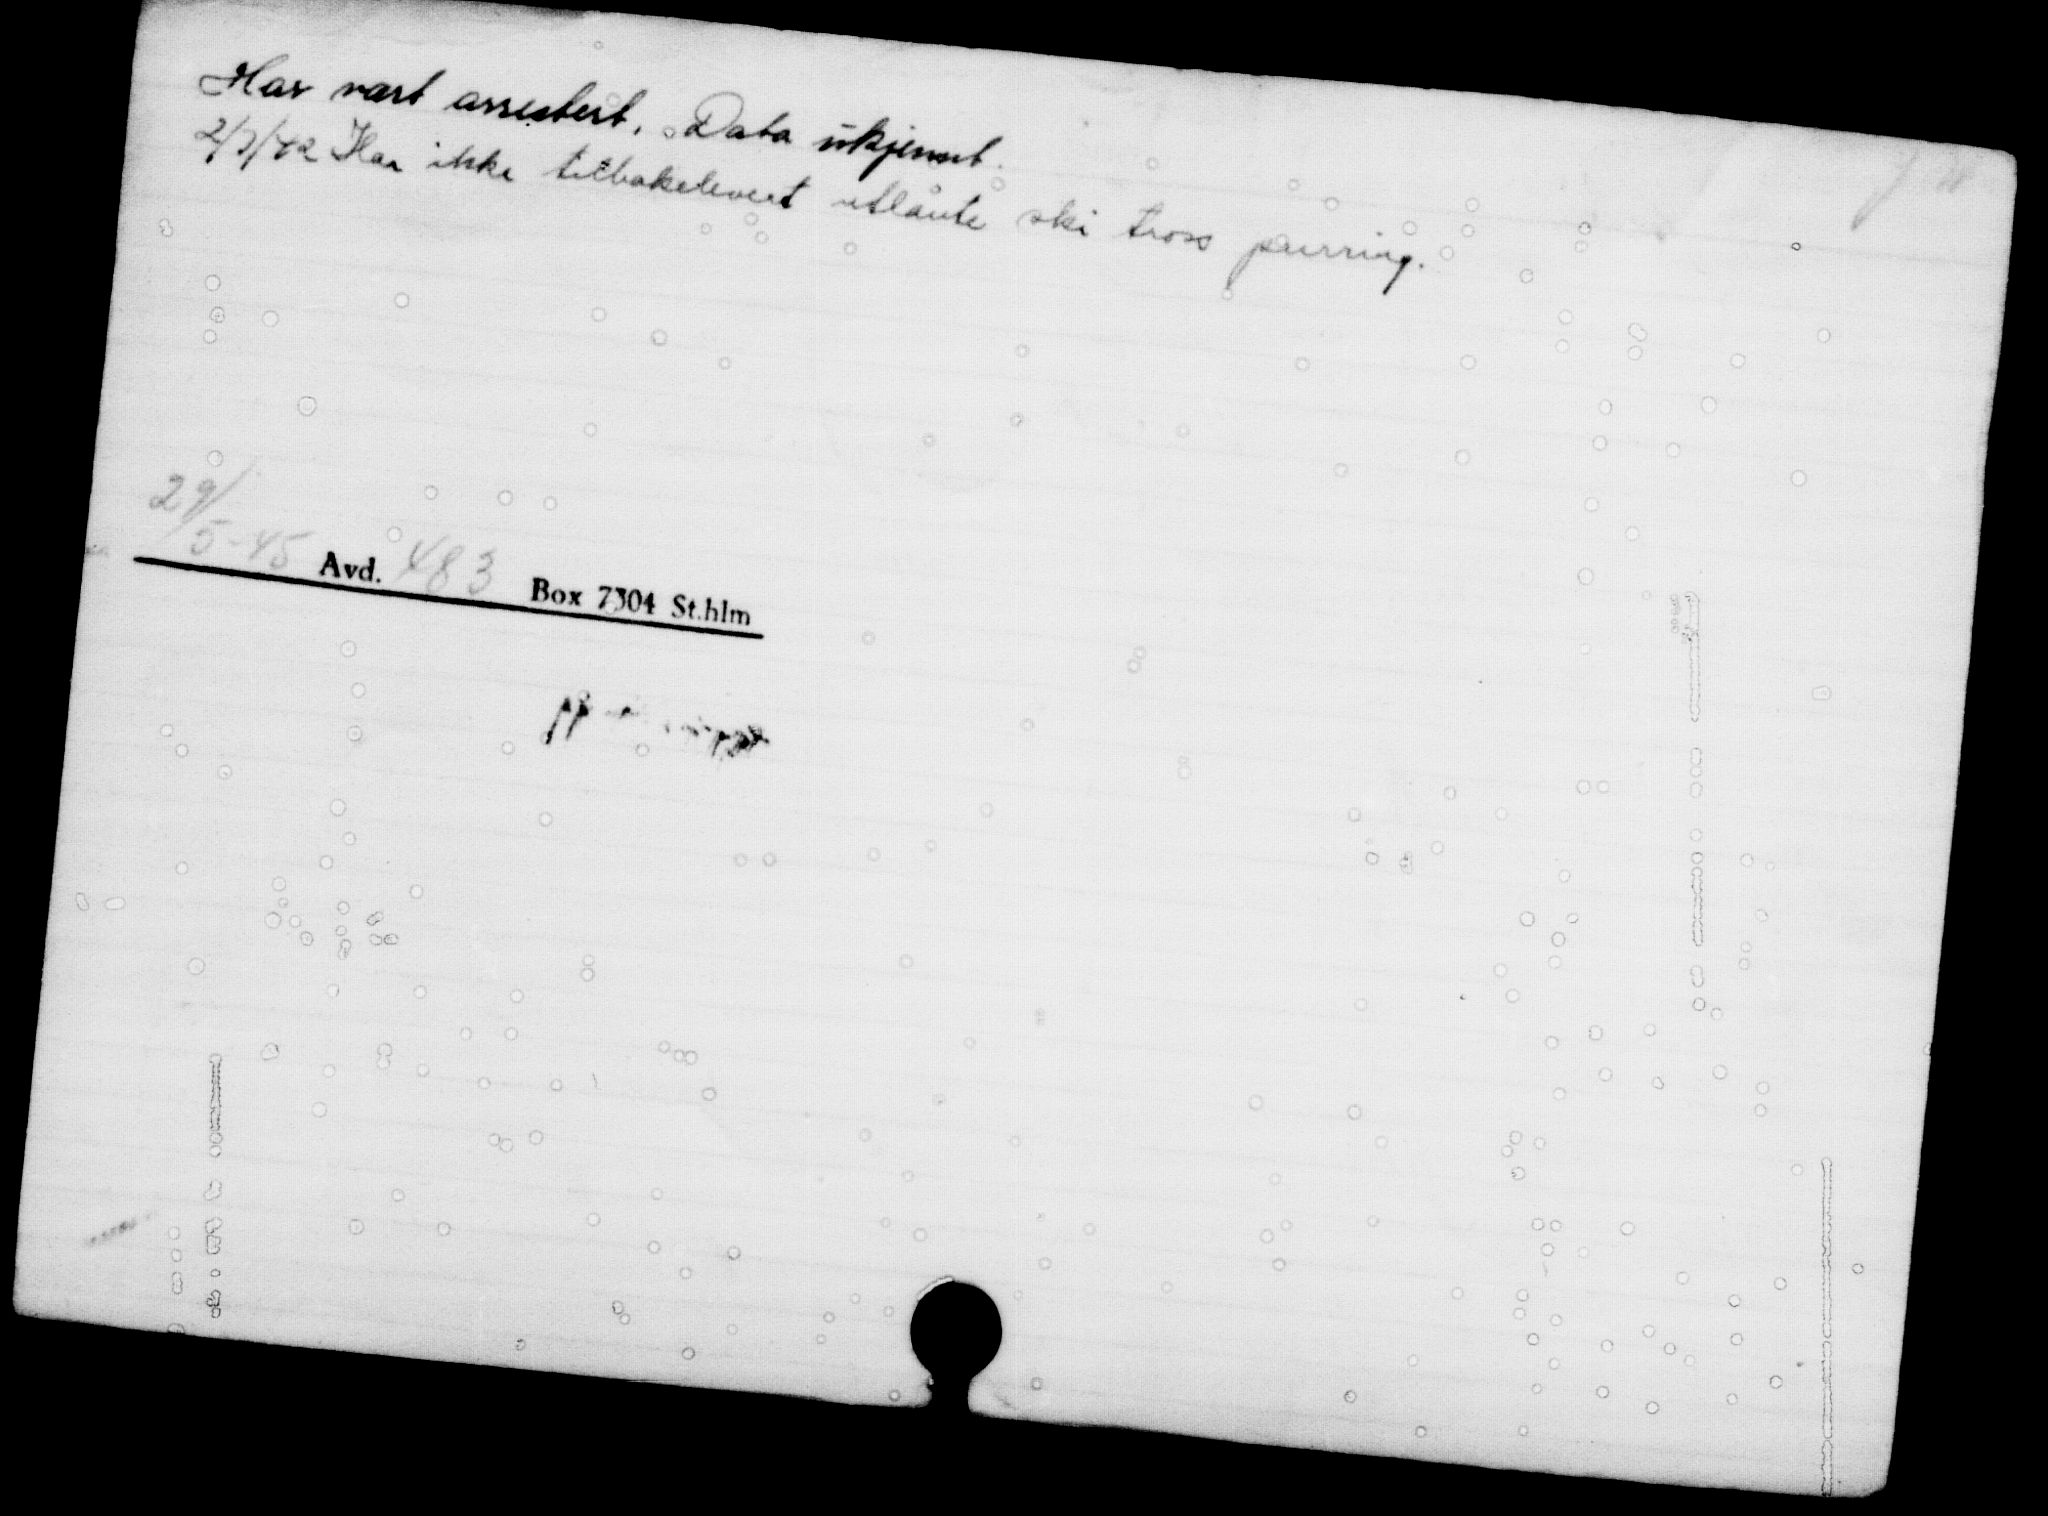 Har vært arrestert. Data ukjennt.
2/7/42 Har ikke tilbakelevert utlånte ski tross purring.
29/5-45 Avd. 483 Box 7304 St.hlm